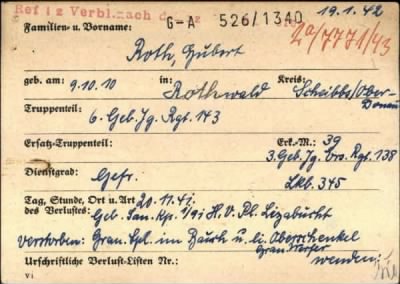 Ref i z Verbl. nach d z G-A 526/1340 19.1.42
Familien- u. Vorname: 2a/7771/43
Roth, Hubert
geb. am: 9.10.10 in: Rothwald Kreis: Scheibbs/Ober-Donau
Truppenteil:
6. Geb. Jg. Rgt. 143
Ersatz-Truppenteil: Erk.-M.: 39
3. Geb. Jg. Ers. Rgt. 138
Dienstgrad: Gefr. Lkb. 345
Tag, Stunde, Ort u. Art des Verlustes: 20.11.41
Geb. San. Kp. 1/91 H. V. Pl. Lizabucht
verstorben: Gran. Spl. im Bauch u. li. Oberschenkel
Gran. Werfer
Urschriftliche Verlust-Listen Nr.: wenden!
VI